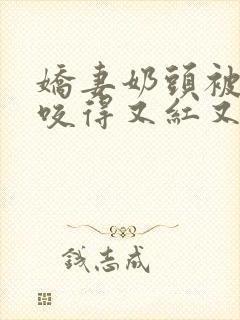 嬌妻奶頭被
咬得又紅又
钱志成